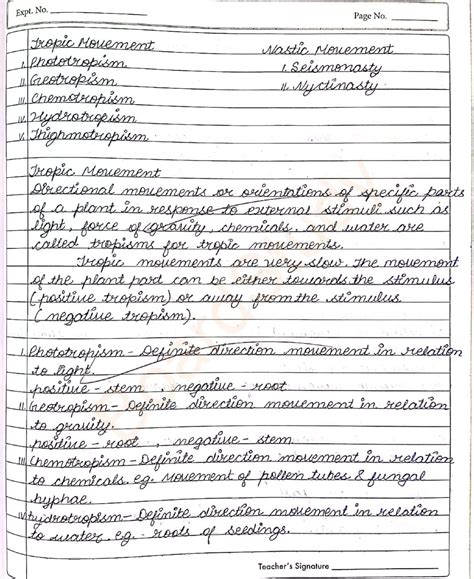 Expt. No.
Page No.
Tropic Movement
Nastic Movement
i. Phototropism
i. Seismonasty
ii. Geotropism
ii. Nyctinasty
iii. Chemotropism
iv. Hydrotropism
v. Thigmotropism
Tropic Movement
Directional movements or orientations of specific parts
of a plant in response to external stimuli such as
light, force of gravity, chemicals, and water are
called tropisms for tropic movements.
Tropic movements are very slow. The movement
of the plant part can be either towards the stimulus
(positive tropism) or away from the stimulus
(negative tropism).
i. Phototropism - Definite direction movement in relation
to light.
positive - stem , negative - root
ii. Geotropism - Definite direction movement in relation
to gravity.
positive - root , negative - stem
iii. Chemotropism - Definite direction movement in relation
to chemicals. eg. Movement of pollen tubes & fungal
hyphae.
iv. hydrotropism - Definite direction movement in relation
to water. eg. - roots of seedings.
Teacher's Signature